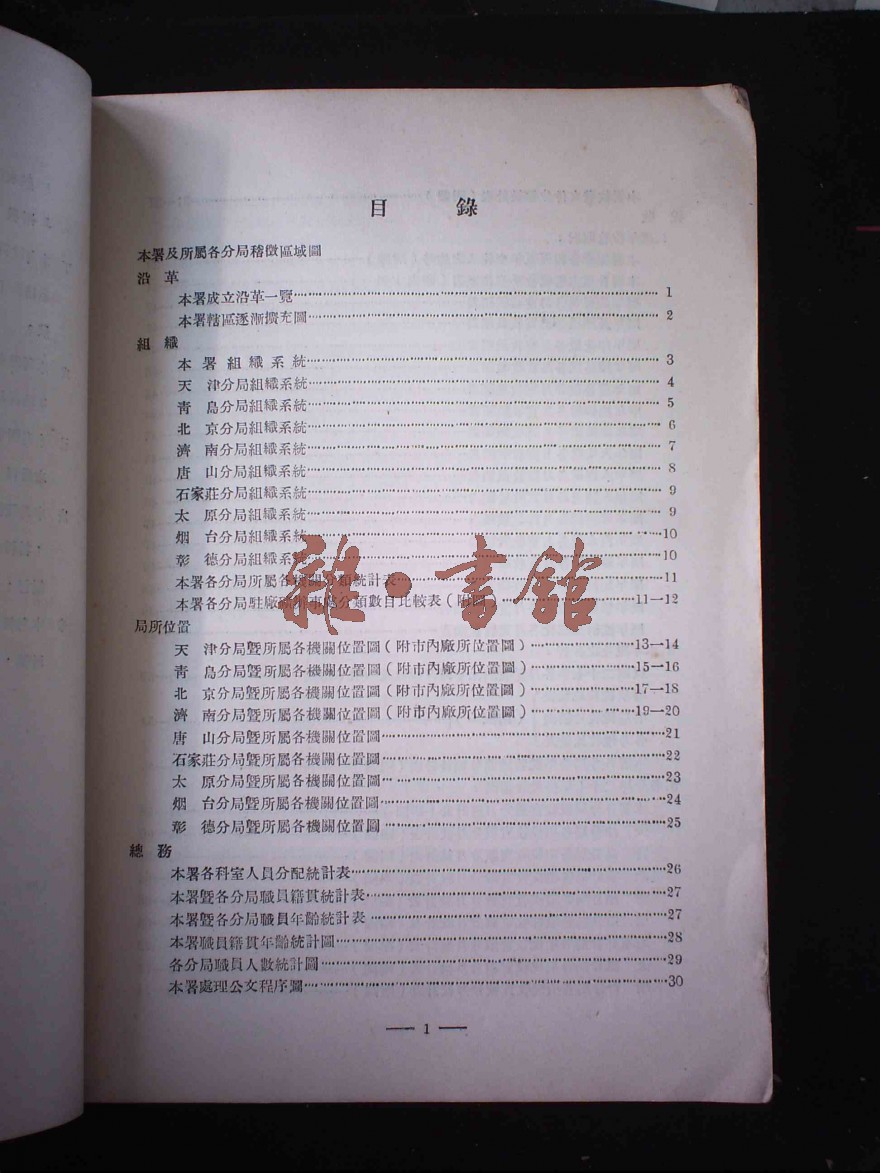 目　錄
本署及所屬各分局稽徵區域圖
沿　革
本署成立沿革一覽……1
本署轄區逐漸擴充圖……2
組　織
本署組織系統……3
天　津分局組織系統……4
青　島分局組織系統……5
北　京分局組織系統……6
濟　南分局組織系統……7
唐　山分局組織系統……8
石家莊分局組織系統……9
太　原分局組織系統……9
烟　台分局組織系統……10
彰　德分局組織系統……10
本署各分局所屬各機關分類統計表……11
本署各分局駐廠辦事處分類數目比較表（附圖）……11—12
雜·書館
局所位置
天　津分局暨所屬各機關位置圖（附市內廠所位置圖）……13—14
青　島分局暨所屬各機關位置圖（附市內廠所位置圖）……15—16
北　京分局暨所屬各機關位置圖（附市內廠所位置圖）……17—18
濟　南分局暨所屬各機關位置圖（附市內廠所位置圖）……19—20
唐　山分局暨所屬各機關位置圖……21
石家莊分局暨所屬各機關位置圖……22
太　原分局暨所屬各機關位置圖……23
烟　台分局暨所屬各機關位置圖……24
彰　德分局暨所屬各機關位置圖……25
總　務
本署各科室人員分配統計表……26
本署暨各分局職員籍貫統計表……27
本署暨各分局職員年齡統計表……27
本署職員籍貫年齡統計圖……28
各分局職員人數統計圖……29
本署處理公文程序圖……30
— 1 —